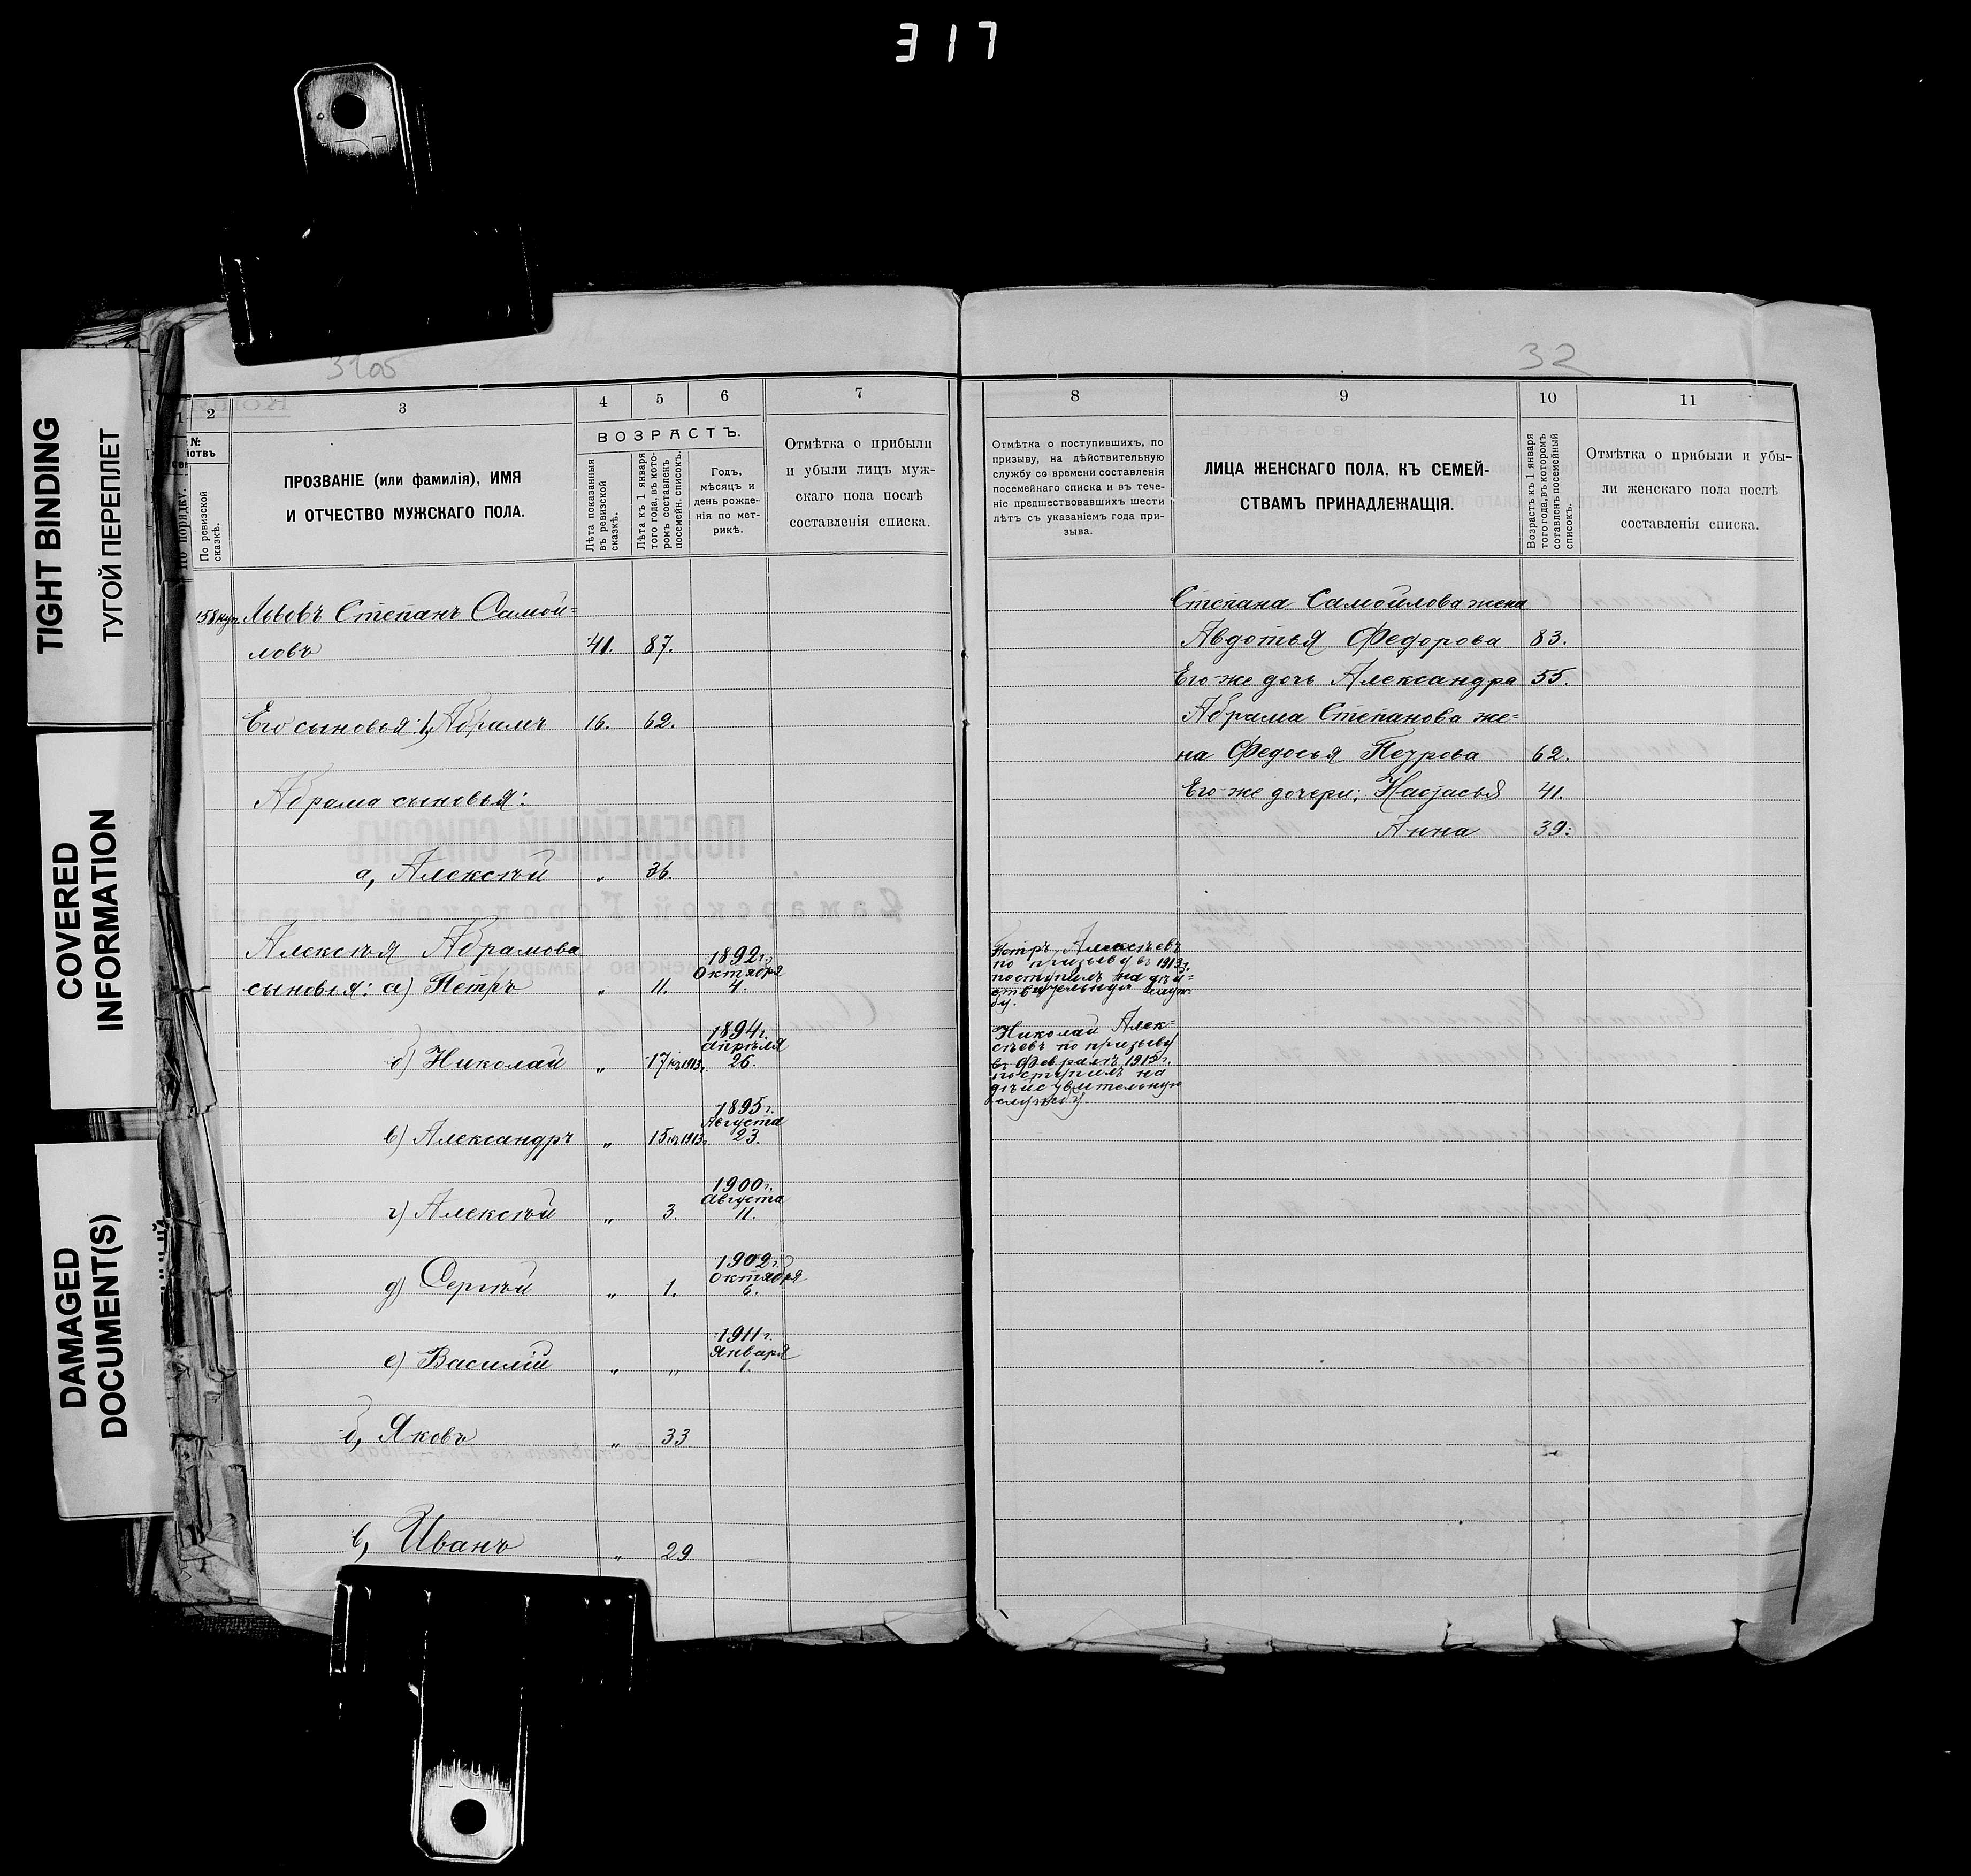 317
TIGHT BINDING
ТУГОЙ ПЕРЕПЛЕТ
COVERED
INFORMATION
DAMAGED
DOCUMENT(S)
3105
32
1 2 3 4 5 6 7
№
По порядку.
По ревизской сказкѣ.
ПРОЗВАНІЕ (или фамилія), ИМЯ
И ОТЧЕСТВО МУЖСКАГО ПОЛА.
ВОЗРАСТЪ.
Лѣта показанныя
въ ревизской
сказкѣ.
Лѣта къ 1 января
того года, въ кото-
ромъ составленъ
посемейн. список.
Годъ,
мѣсяцъ и
день рожде-
нія по мет-
рикѣ.
Отмѣтка о прибыли
и убыли лицъ муж-
скаго пола послѣ
составленія списка.
8 9 10 11
Отмѣтка о поступившихъ, по
призыву, на дѣйствительную
службу со времени составленія
посемейнаго списка и въ тече-
ніе предшествовавшихъ шести
лѣтъ съ указаніемъ года при-
зыва.
ЛИЦА ЖЕНСКАГО ПОЛА, КЪ СЕМЕЙ-
СТВАМЪ ПРИНАДЛЕЖАЩІЯ.
Возрастъ къ 1 января
того года, въ которомъ
составленъ посемейный
список.
Отмѣтка о прибыли и убы-
ли женскаго пола послѣ
составленія списка.
158 куп. Львовъ Степанъ Самой=
ловъ 41. 87.
Его сыновья: 1, Абрамъ 16. 62.
Абрама сыновья:
а, Алексѣй „ 36.
Алексѣя Абрамова
сыновья: а) Петръ „ 11. 1892 г. Октября 4.
б) Николай „ 17 къ 1913 г. 1894 г. апрѣля 26.
в) Александръ „ 15 къ 1913 г. 1895 г. Августа 23.
г) Алексѣй „ 3. 1900 г. Августа 11.
д) Сергѣй „ 1. 1902 г. Октября 6.
е) Василій „ „ 1911 г. Января 1.
б, Яковъ „ 33
в, Иванъ „ 29
Петръ Алексѣевъ
по призыву въ 1913 г.
поступилъ на дѣй=
ствительную служ-
бу.
Николай Алек=
сѣевъ по призыву
въ Февралѣ 1915 г.
поступилъ на
дѣйствительную
службу.
Степана Самойлова жена
Авдотья Федорова 83.
Его-же дочь Александра 55.
Абрама Степанова же=
на Федосья Петрова 62.
Его-же дочери: Настасья 41.
Анна 39.